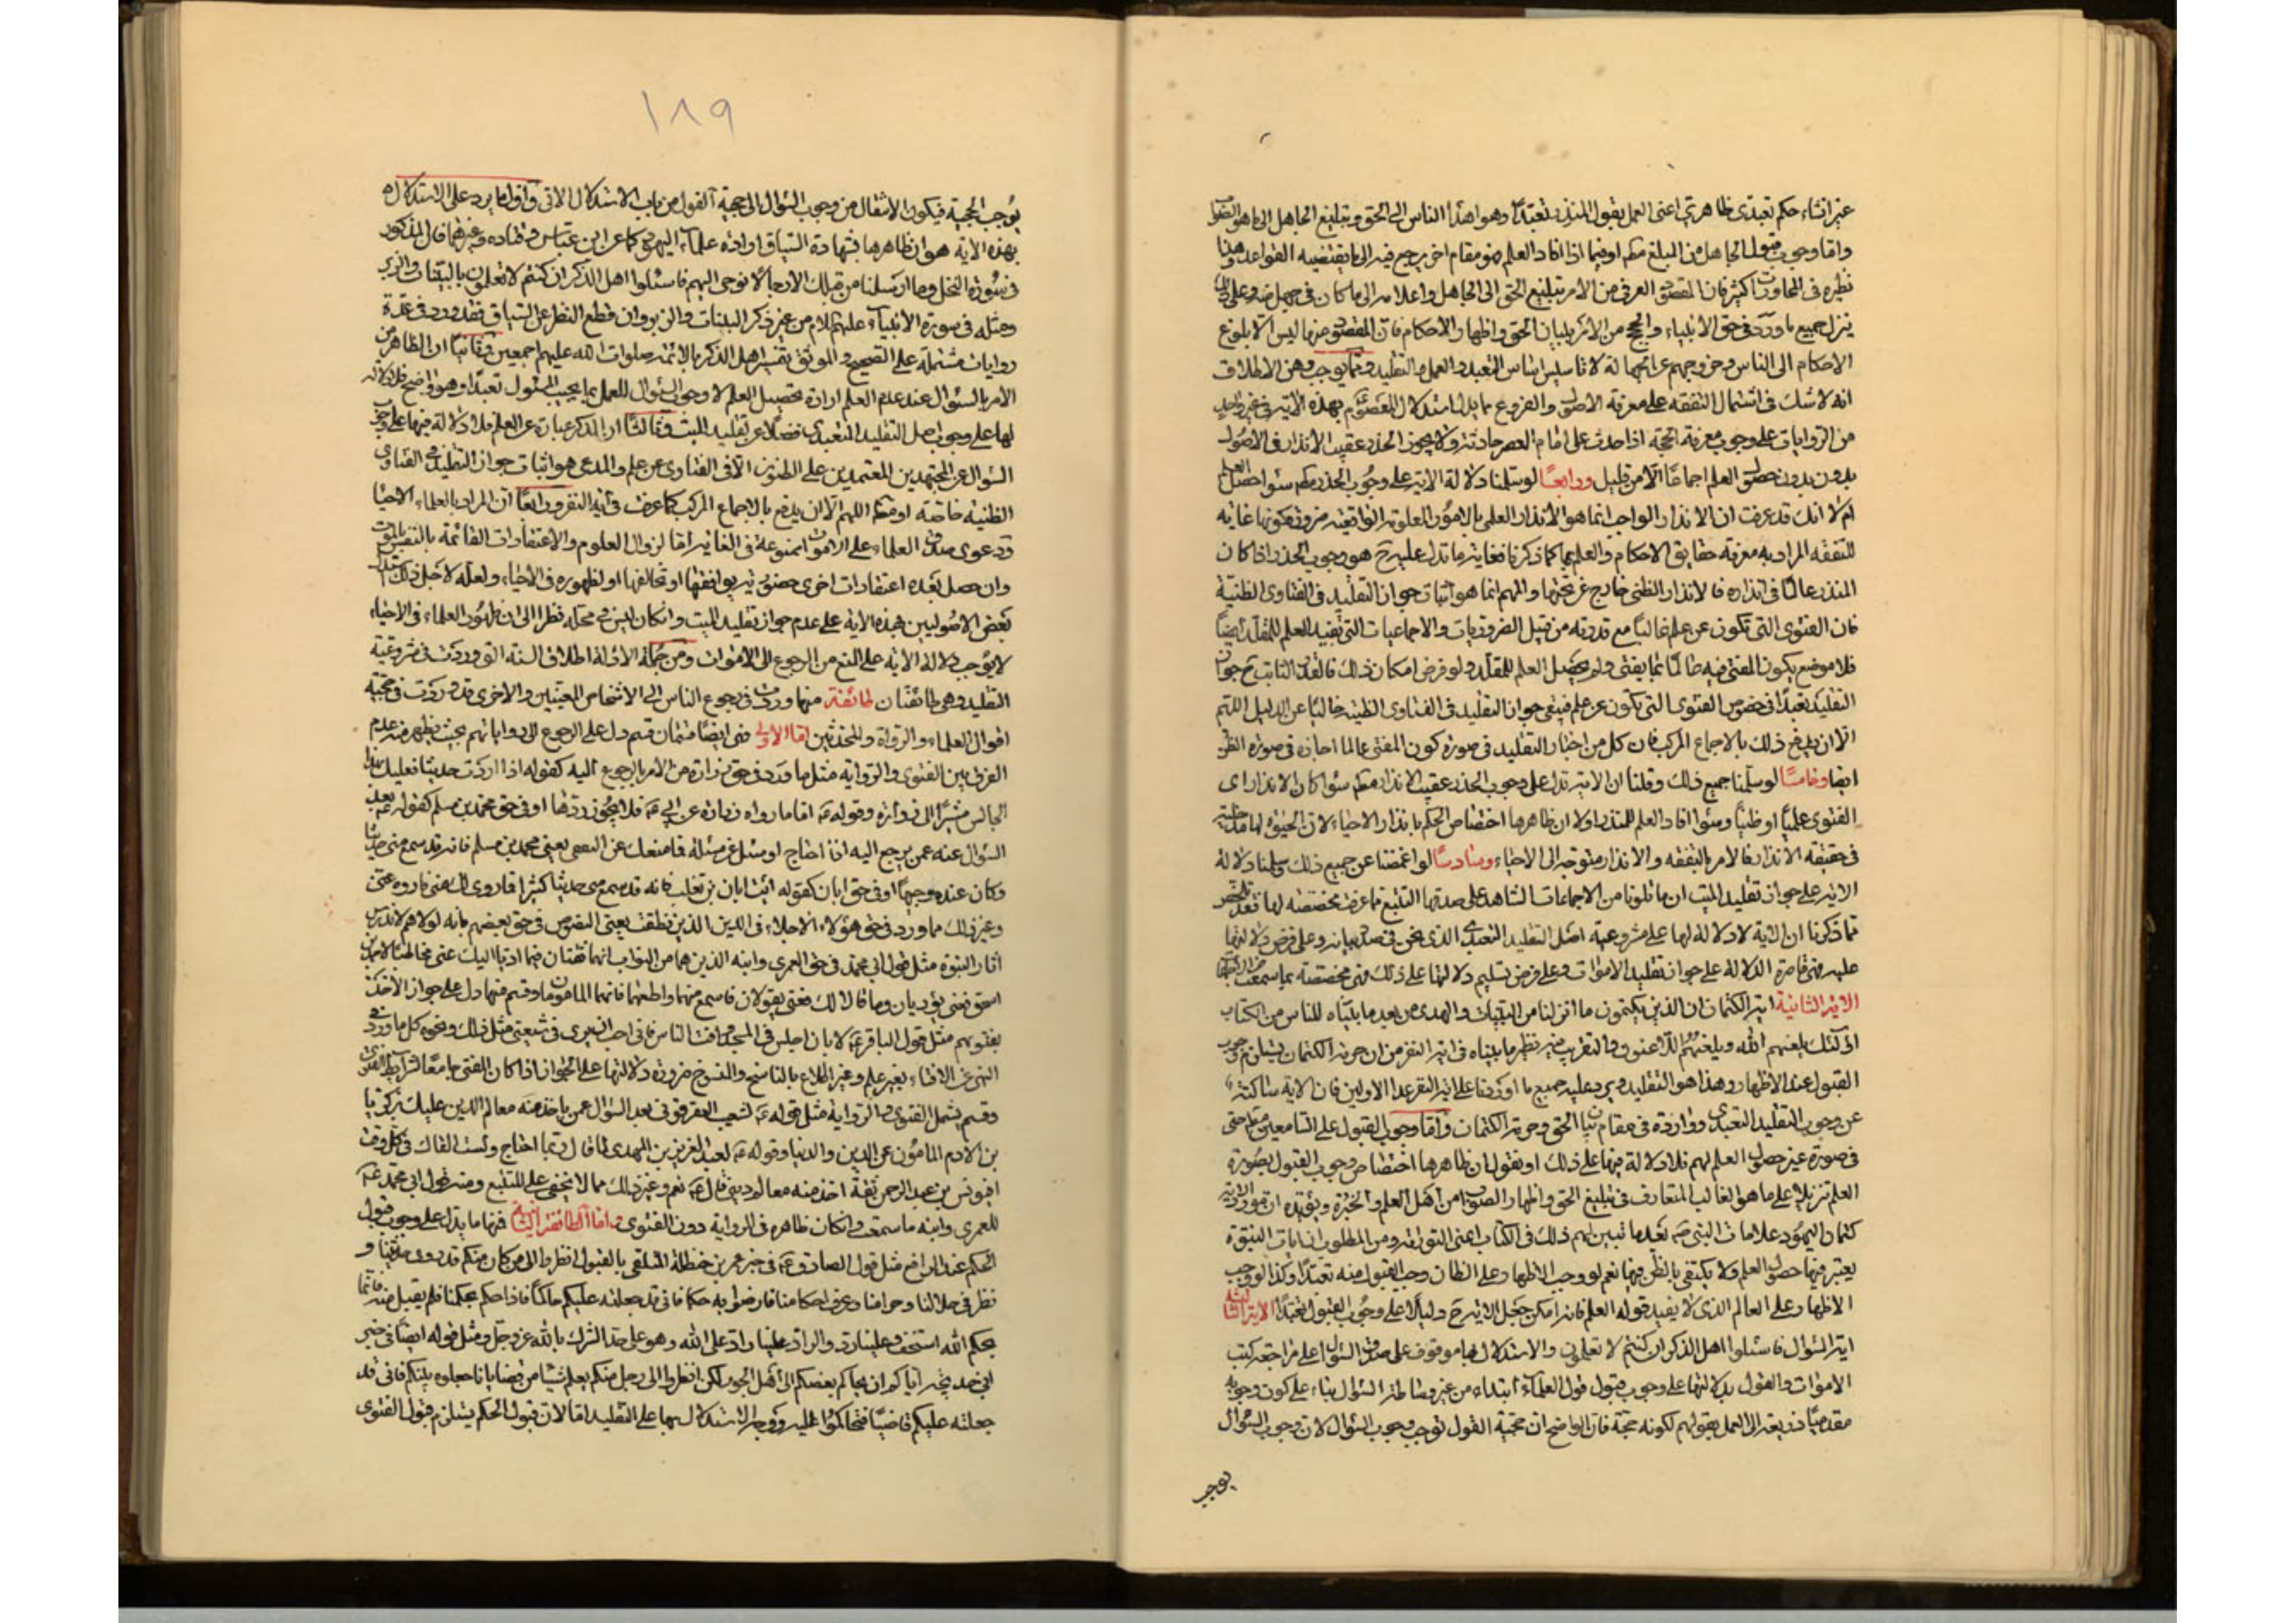 غير انشاء حكم تعبدى ظاهرى اعنى العمل بقول المنذر تعبدا وهو اهداء الناس الى الحق وتبليغ الجاهل الى ما هو
واما وجوب قبول الجاهل من المبلغ مطم او فيما اذا افاد العلم فهو مقام اخر يرجع فيه الى ما يقتضيه القواعد
نظيره فى المحاورات كثير فان المقصود العرفى من الامر بتبليغ الحق الى الجاهل واعلامه الى ما كان فى جهل منه وعلى ذلك
ينزل جميع ما ورد فى حق الانبياء والحجج من الامر ببيان الحق واظهار الاحكام فان المقصود منها ليس الا بلوغ
الاحكام الى الناس وخروجهم عن الجهالة لا تاسيس اساس التعبد والعمل والتقليد ومما يوجب وهن الاطلاق
انه لا شك فى اشتمال التفقه على معرفة الاصول والفروع بدليل استدلال المعصوم بهذه الاية فى غير واحد
من الروايات على وجوب معرفة الحجة اذا حدث على امام العصر حادثة ولا يجوز الحذر عقيب الانذار فى الاصول
بدون بدون حصول العلم اجماعا الا من قليل ورابعا لو سلمنا دلالة الاية على وجوب الحذر مطم سواء حصل العلم
ام لا انك قد عرفت ان الانذار الواجب انما هو الانذار العلمى بالامور المعلومة الواقعية ضرورة كونها غاية
للتفقه المراد به معرفة حقايق الاحكام والعلم بها كما ذكرنا فغاية ما تدل عليه ح هو وجوب الحذر اذا كان
المنذر عالما فى انذاره فالانذار الظنى خارج عن تحتها والمهم انما هو اثبات جواز التقليد فى الفتاوى الظنية
فان الفتوى التى تكون عن علم غالبا مع ندرته من قبيل الضروريات والاجماعيات التى تفيد العلم للمقلد ايضا
فلا موضع يكون المفتى فيه عالما بما يفتى ولم يحصل العلم للمقلد ولو فرض امكان ذلك فالقدر الثابت ح جواز
التقليد تعبدا فى خصوص الفتوى التى تكون عن علم فيبقى جواز التقليد فى الفتاوى الظنية خاليا عن الدليل اللهم
الا ان يدفع ذلك بالاجماع المركب فان كل من اختار التقليد فى صورة كون المفتى عالما اجازه فى صورة الظن
ايضا وخامسا لو سلمنا جميع ذلك وقلنا ان الاية تدل على وجوب الحذر عقيب الانذار مطم سواء كان الانذار اى
الفتوى علميا او ظنيا وسواء افاد العلم للمنذر اولا ان ظاهرها اختصاص الحكم بانذار الاحياء لان الحيوة لها مدخلية
فى حقيقة الانذار فالامر بالتفقه والانذار متوجه الى الاحياء وسادسا لو اغمضنا عن جميع ذلك وسلمنا دلالة
الاية على جواز تقليد الميت ان ما تلونا من الاجماعات الشاهد على صدقها التتبع مما عرفت مخصصة لها فقد تلخص
مما ذكرنا ان الاية لا دلالة لها على مشروعية اصل التقليد التعبدى الذى نحن فى صدد بيانه وعلى فرض دلالتها
عليه فهى قاصرة الدلالة على جواز تقليد الاموات وعلى فرض تسليم دلالتها على ذلك فهى مخصصة بما سمعت
الاية الثانية اية الكتمان ان الذين يكتمون ما انزلنا من البينات والهدى من بعد ما بيناه للناس من الكتاب
اولئك يلعنهم الله ويلعنهم اللاعنون والتقريب فيه نظير ما بيناه فى اية النفر من ان حرمة الكتمان يستلزم وجوب
القبول عند الاظهار وهذا هو التقليد ويرد عليه جميع ما اوردنا على اية النفر عدا الاولين فان الاية ساكتة
عن وجوب التقليد التعبدى وواردة فى مقام بيان الحق وحرمة الكتمان واما وجوب القبول على السامعين مطم حتى
فى صورة غير حصول العلم لهم فلا دلالة فيها على ذلك او نقول ان ظاهرها اختصاص وجوب القبول بصورة
العلم تنزيلا على ما هو الغالب المتعارف فى تبليغ الحق واظهار الصواب من اهل العلم والخبرة ويؤيده ان مورد الاية
كتمان اليهود علامات النبى ص بعد ما تبين لهم ذلك فى الكتاب اعنى التوراة ومن المطلوب ان ايات النبوة
يعتبر فيها حصول العلم ولا يكتفى بالظن فيها نعم لو وجب الاظهار على الظان وجب القبول منه تعبدا وكذا لو وجب
الاظهار على العالم الذى لا يفيد قوله العلم فانه امكن جعل الاية ح دليلا على وجوب القبول تعبدا الاية الثالثة
اية السؤال فاسئلوا اهل الذكر ان كنتم لا تعلمون والاستدلال بها موقوف على صدق السؤال على مراجعة كتب
الاموات والقول بدلالتها على وجوب قبول قول العلماء ابتداء من غير وساطة السؤال بناء على كون وجوبه
مقدميا ذريعة الى العمل بقولهم لكونه حجة فان الواضح ان حجية القول توجب وجوب السؤال لان وجوب السؤال
يوجب
١٨٩
يوجب الحجية فيكون الانتقال من وجوب السؤال الى حجية القول من باب الاستدلال الانى واول ما يرد على الاستدلال
بهذه الاية هو ان ظاهرها بشهادة السياق ارادة علماء اليهود كما عن ابن عباس وقتادة وغيرهما قال المذكور
فى سورة النحل وما ارسلنا من قبلك الا رجالا نوحى اليهم فاسئلوا اهل الذكر ان كنتم لا تعلمون بالبينات والزبر
ومثله فى سورة الانبياء عليهم السلام من غير ذكر البينات والزبر وان قطع النظر عن السياق فقد ورد فى عدة
روايات مشتملة على الصحيح والموثق تفسير اهل الذكر بالائمة صلوات الله عليهم اجمعين وثانيا ان الظاهر من
الامر بالسئوال عند عدم العلم ارادة تحصيل العلم لا وجوب السئوال للعمل بما يجيب المسئول تعبدا وهو واضح فلا دلالة
لها على وجوب اصل التقليد التعبدى فضلا عن تقليد الميت وثالثا ان الذكر عبارة عن العلم فلا دلالة فيها على وجوب
السئوال عن المجتهدين المعتمدين على الظنون الا فى الفتاوى عن علم والمدعى هو اثبات جواز التقليد فى الفتاوى
الظنية خاصة او مطم اللهم الا ان يدفع بالاجماع المركب كما عرفت فى اية النفر ورابعا ان المراد بالعلماء الاحياء
ودعوى صدق العلماء على الاموات ممنوعة فى الغاية اما لزوال العلوم والاعتقادات القائمة بالنفس بالموت
وان حصل بعده اعتقادات اخرى حضورية يوافقها او تخالفها او لظهوره فى الاحياء ولعله لاجل ذلك استدل
بعض الاصوليين بهذه الاية على عدم جواز تقليد الميت وان كان ليس فى محله نظرا الى ان ظهور العلماء فى الاحياء
لا يوجب دلالة الاية على المنع من الرجوع الى الاموات ومن جملة الادلة اطلاق السنة التى وردت فى مشروعية
التقليد وهى طائفتان طائفة منها وردت فى رجوع الناس الى الاشخاص المعينين والاخرى قد وردت فى حجية
اقوال العلماء والرواة والمحدثين اما الاولى فهى ايضا قسمان قسم دل على الرجوع الى رواياتهم بحيث يظهر منه عدم
الفرق بين الفتوى والرواية مثل ما ورد فى حق زرارة من الامر بالرجوع اليه كقوله اذا اردت حديثا فعليك بهذا
الجالس مشيرا الى زرارة وقوله ع اما ما رواه زرارة عن ابى ع فلا يجوز ردها او فى حق محمد بن مسلم كقوله ع بعد
السئوال عنه عمن يرجع اليه اذا احتاج او سئل عن مسئلة فما منعك عن الثقفى يعنى محمد بن مسلم فانه قد سمع من ابى
وكان عنده وجيها او فى حق ابان كقوله ائت ابان بن تغلب فانه قد سمع منى حديثا كثيرا فما روى لك عنى فاروه عنى
وغير ذلك مما ورد فى حق هؤلاء الاجلاء فى الدين الذين نطقت بعض النصوص فى حق بعضهم بانه لولاهم لاندرس
اثار النبوة مثل قول ابى محمد فى حق العمرى وابنه الذين هما من النواب انهما ثقتان فما اديا اليك عنى
اسحق فعنى يؤديان وما قالا لك فعنى يقولان فاسمع منهما واطعهما فانهما المامونان وقسم منها دل على جواز الاخذ
بفتويهم مثل قول الباقر ع لابان اجلس فى المسجد وافت الناس فانى احب ان يرى فى شيعتى مثلك ونحوه كل ما ورد فى
النهى عن الافتاء بغير علم وغير اطلاع بالناسخ والمنسوخ ضرورة دلالتها على الجواز اذا كان المفتى جامعا لشرايط الفتوى
وقسم يشمل الفتوى والرواية مثل قوله ع لشعيب العقرقوفى بعد السؤال عمن ياخذ منه معالم الدين عليك بزكريا
بن الادم المامون عن الدين والدنيا وقوله ع لعبد العزيز بن المهدى لما قال ربما احتاج ولست القاك فى كل وقت
افيونس بن عبد الرحمن ثقة اخذ منه معالم دينى قال ع نعم وغير ذلك مما لا يخفى على المتتبع ومنه قول ابى محمد ع
للعمرى وابنه ما سمعت وان كان ظاهره فى الرواية دون الفتوى واما الطائفة الثانية فمنها ما يدل على وجوب قبول
الحكم عند الترافع مثل قول الصادق ع فى خبر عمر بن حنظلة المتلقى بالقبول انظروا الى من كان منكم قد روى حديثنا و
نظر فى حلالنا وحرامنا وعرف احكامنا فارضوا به حكما فانى قد جعلته عليكم حاكما فاذا حكم بحكمنا فلم يقبل منه فانما
بحكم الله استخف وعلينا رد والراد علينا راد على الله وهو على حد الشرك بالله عز وجل ومثل قوله ايضا فى خبر
ابى خديجة اياكم ان يحاكم بعضكم الى اهل الجور لكن انظروا الى رجل منكم يعلم شيئا من قضايانا فاجعلوه بينكم فانى قد
جعلته عليكم قاضيا فتحاكموا اليه ووجه الاستدلال بهما على التقليد اما لان قبول الحكم يستلزم قبول الفتوى